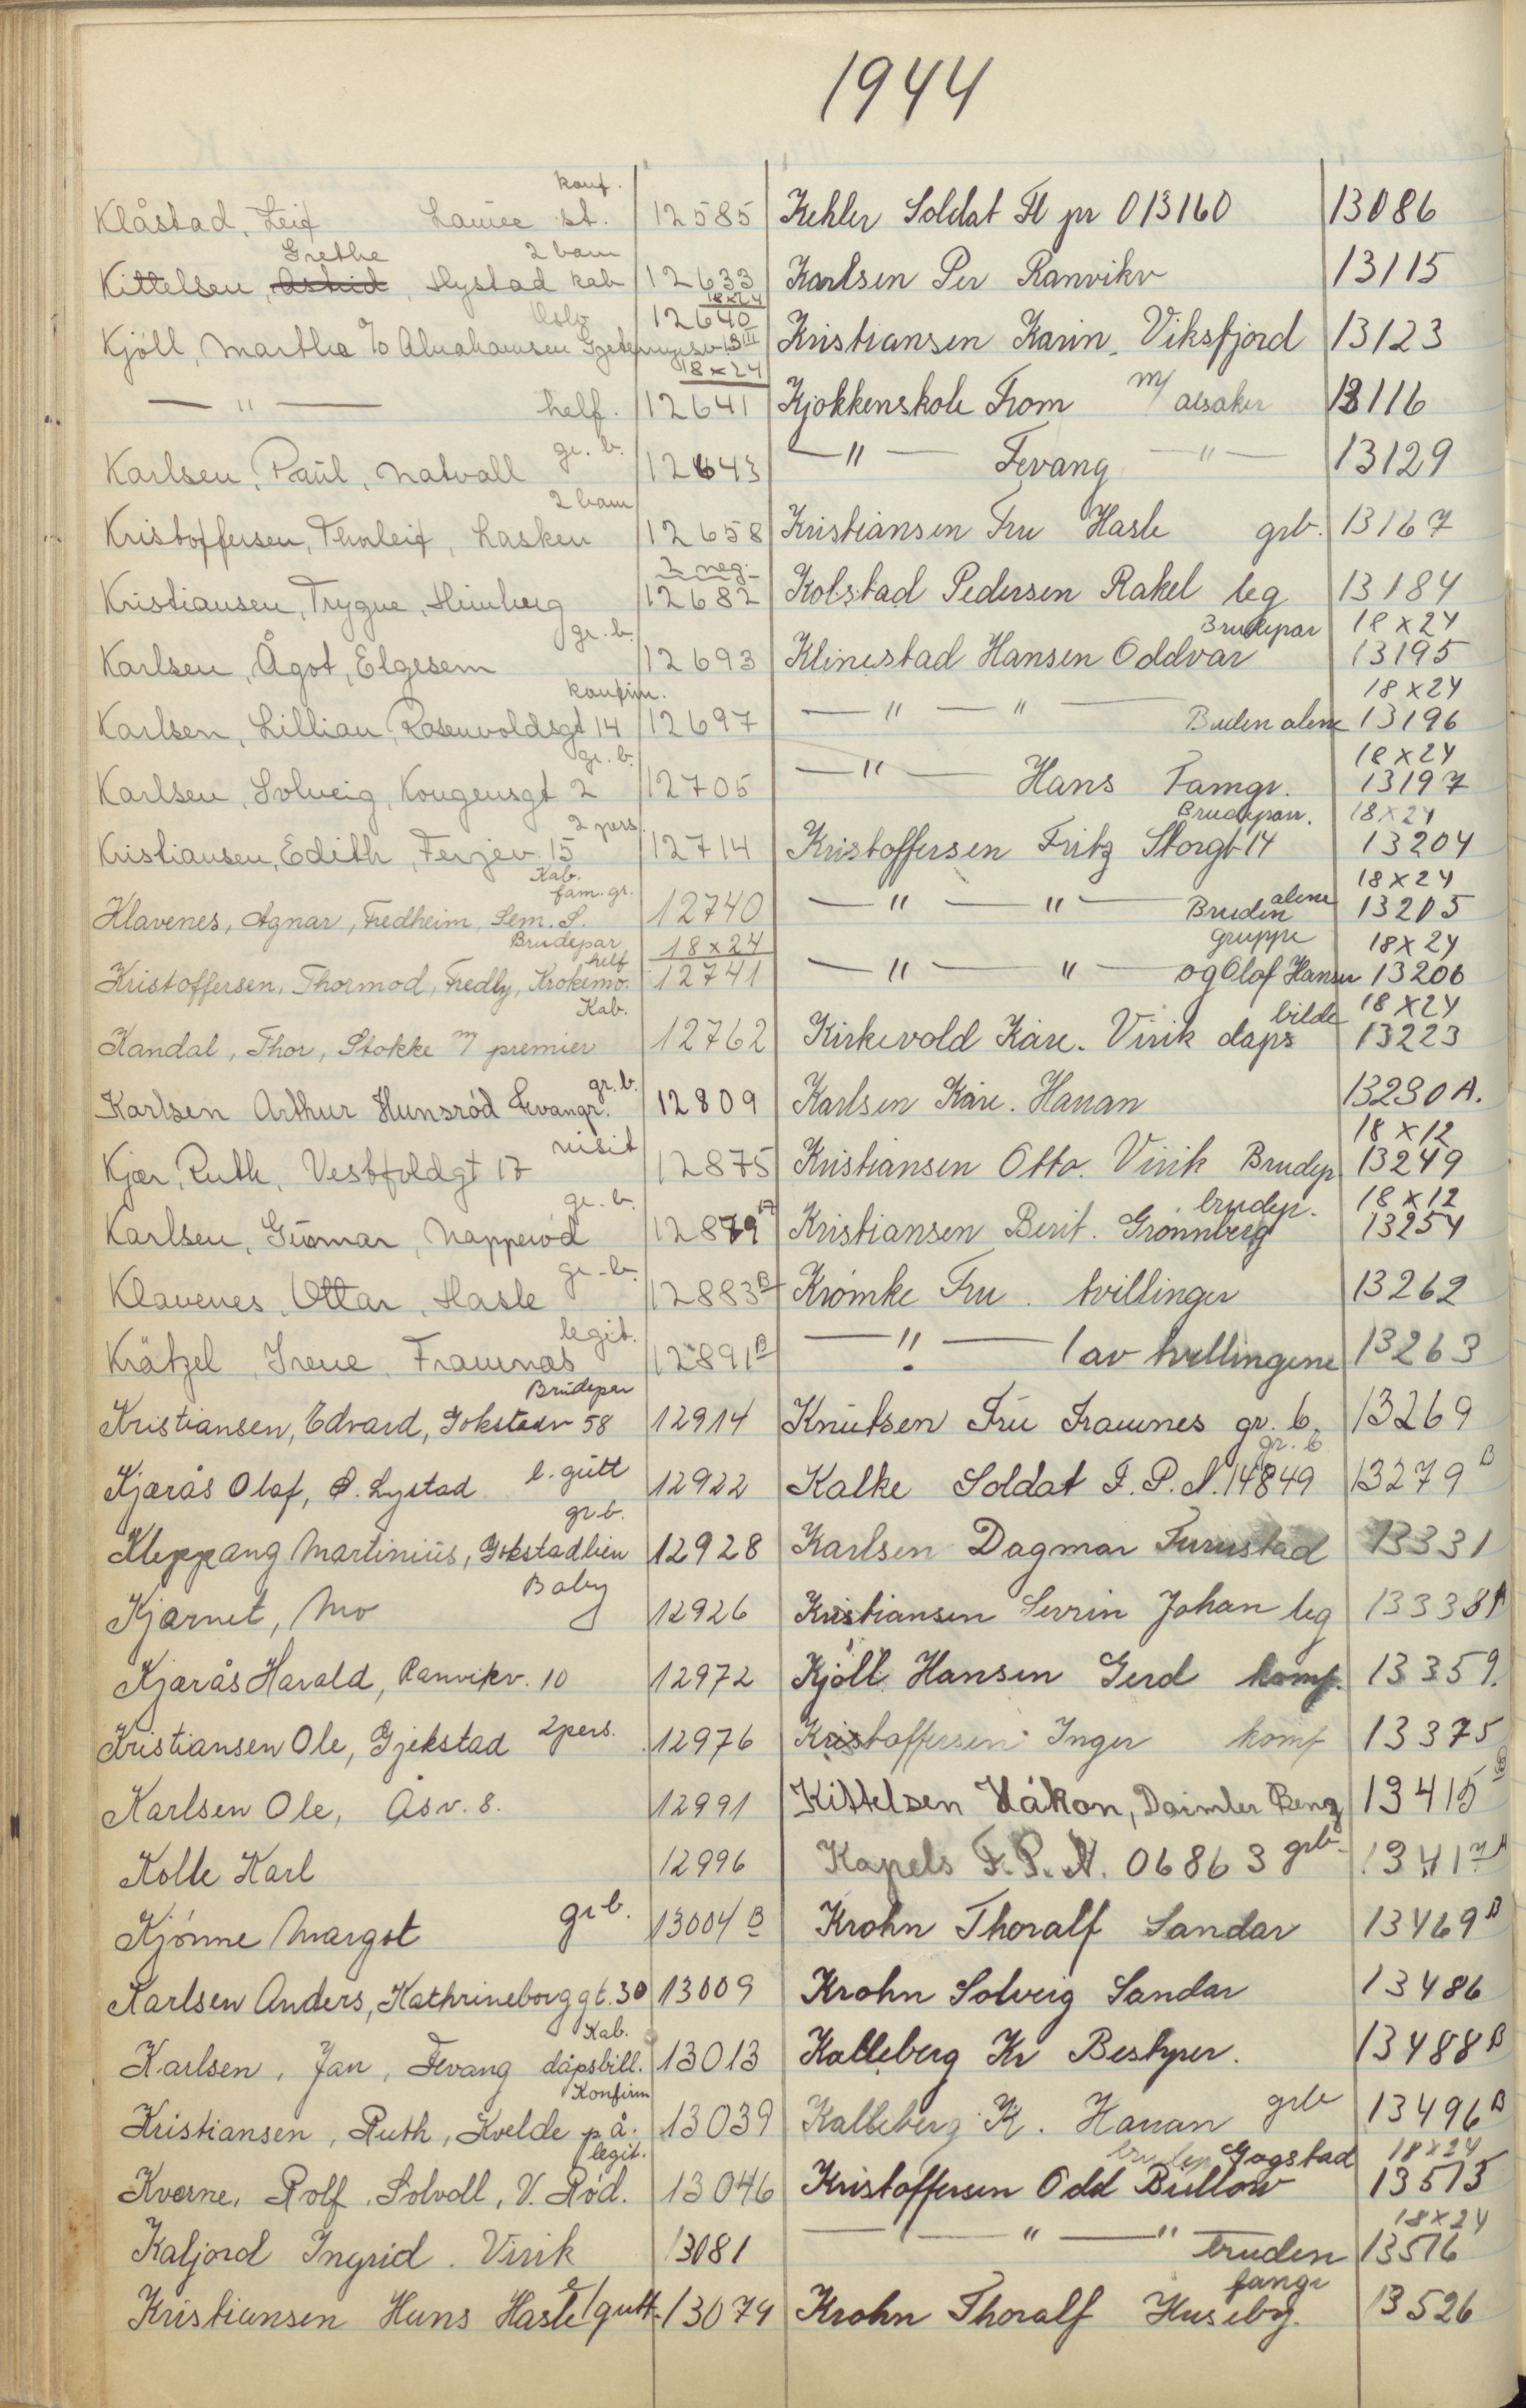 1944
konf.
Klåstad, Leif st. 12585
Grethe 2 barn
Kittelsen, Astrid, Hystad kab 12633
18x24
Oslo 12640
Kjöll, Martha c/o Abrahamsen
18x24
— " — helf. 12641
gr. b.
Karlsen, Paul, Natvall 12643
2 barn
Kristoffersen, Thorleif, Lasken 12658
2 neg.
Kristiansen, Trygve, Himberg 12682
gr. b.
Karlsen, Ågot, Elgesem 12693
konfirm.
Karlsen, Lillian, Rosenvoldsgt 14 12697
gr. b.
Karlsen, Solveig, Kongensgt 2 12705
2 pers.
Kristiansen, Edith, Ferjev. 15 12714
Kab.
fam. gr.
Klavenes, Agnar, Fredheim, Sem. S. 12740
Brudepar 18x24
helf
Kristoffersen, Thormod, Fredly, Krokemo. 12741
Kab.
Kandal, Thor, Stokke m premier 12762
gr. b.
Karlsen Arthur Hunsrød Fevangr. 12809
visit
Kjær, Ruth, Vestfoldgt 17 12875
gr. b.
Karlsen, Gunnar, Napperød 12879
gr. b.
Klavenes, Ottar, Hasle 12883 B
legit.
Krätzel, Irene, Framnæs 12891 B
Brudepar
Kristiansen, Edvard, Gokstadv 58 12914
l. gutt
Kjærås Olaf, Ø. Lystad 12922
gr b.
Kleppang Martinius, Gokstadlien 12928
Baby
Kjærnet, Mo 12926
Kjærås Harald, Ranvikv. 10 12972
Kristiansen Ole, Gjekstad 2pers. 12976
Karlsen Ole, Åsv. 8. 12991
Kolle Karl 12996
Kjönne Margot gr b. 13004 B
Karlsen Anders, Kathrineborggt. 30 13009
Kab.
Karlsen, Jan, Fevang dåpsbill. 13013
Konfirm
Kristiansen, Ruth, Kvelde p å. 13039
legit.
Kverne, Rolf, Solvoll, V. Rød. 13046
Kaljord Ingrid. Virik 13081
Kristiansen Hans Hasle 1 gutt 13074
Kehler Soldat Fl pr 013160 13086
Karlsen Per Ranvikv 13115
Kristiansen Karin. Viksfjord 13123
Kjøkkenskole From m/ Alsaker 13116
— " — Fevang — " — 13129
Kristiansen Fru Hasle grb. 13167
Kolstad Pedersen Rakel leg 13184
Brudepar 18x24
Klinestad Hansen Oddvar 13195
18x24
— " — " — Bruden alene 13196
18x24
— " — Hans Famgr. 13197
Brudepar. 18x24
Kristoffersen Fritz Storgt 14 13204
18x24
— " — " — Bruden alene 13205
gruppe 18x24
— " — " — og Olaf Hansen 13206
bilde 18x24
Kirkevold Kåre. Virik daps 13223
Karlsen Kåre. Haran 13230 A.
18x12
Kristiansen Otto. Virik Brudep 13249
brudep. 18x12
Kristiansen Berit. Grønnberg 13254
Krömke Fru. tvillinger 13262
— " — 1 av tvillingene 13263
Knutsen Fru Framnes gr. b. 13269
gr. b
Kalke Soldat F. P. N. 14849 13279 B
Karlsen Dagmar Furustad 13331
Kristiansen Serrin Johan leg 13338 A
Kjöll Hansen Gerd komf. 13359.
Kristoffersen Inger komf 13375
Kittelsen Håkon, Daimler Benz 13415 B
Kapels F. P. N. 06863 grb. 13417 A
Krohn Thoralf Sandar 13469 B
Krohn Solveig Sandar 13486
Kalleberg Kr Bestyrer. 13488 B
Kalleberg K. Haran grb 13496 B
brudep Gogstad 18x24
Kristoffersen Odd Bullow 13515
18x24
— " — " — bruden 13516
famgr
Krohn Thoralf Huseby. 13526